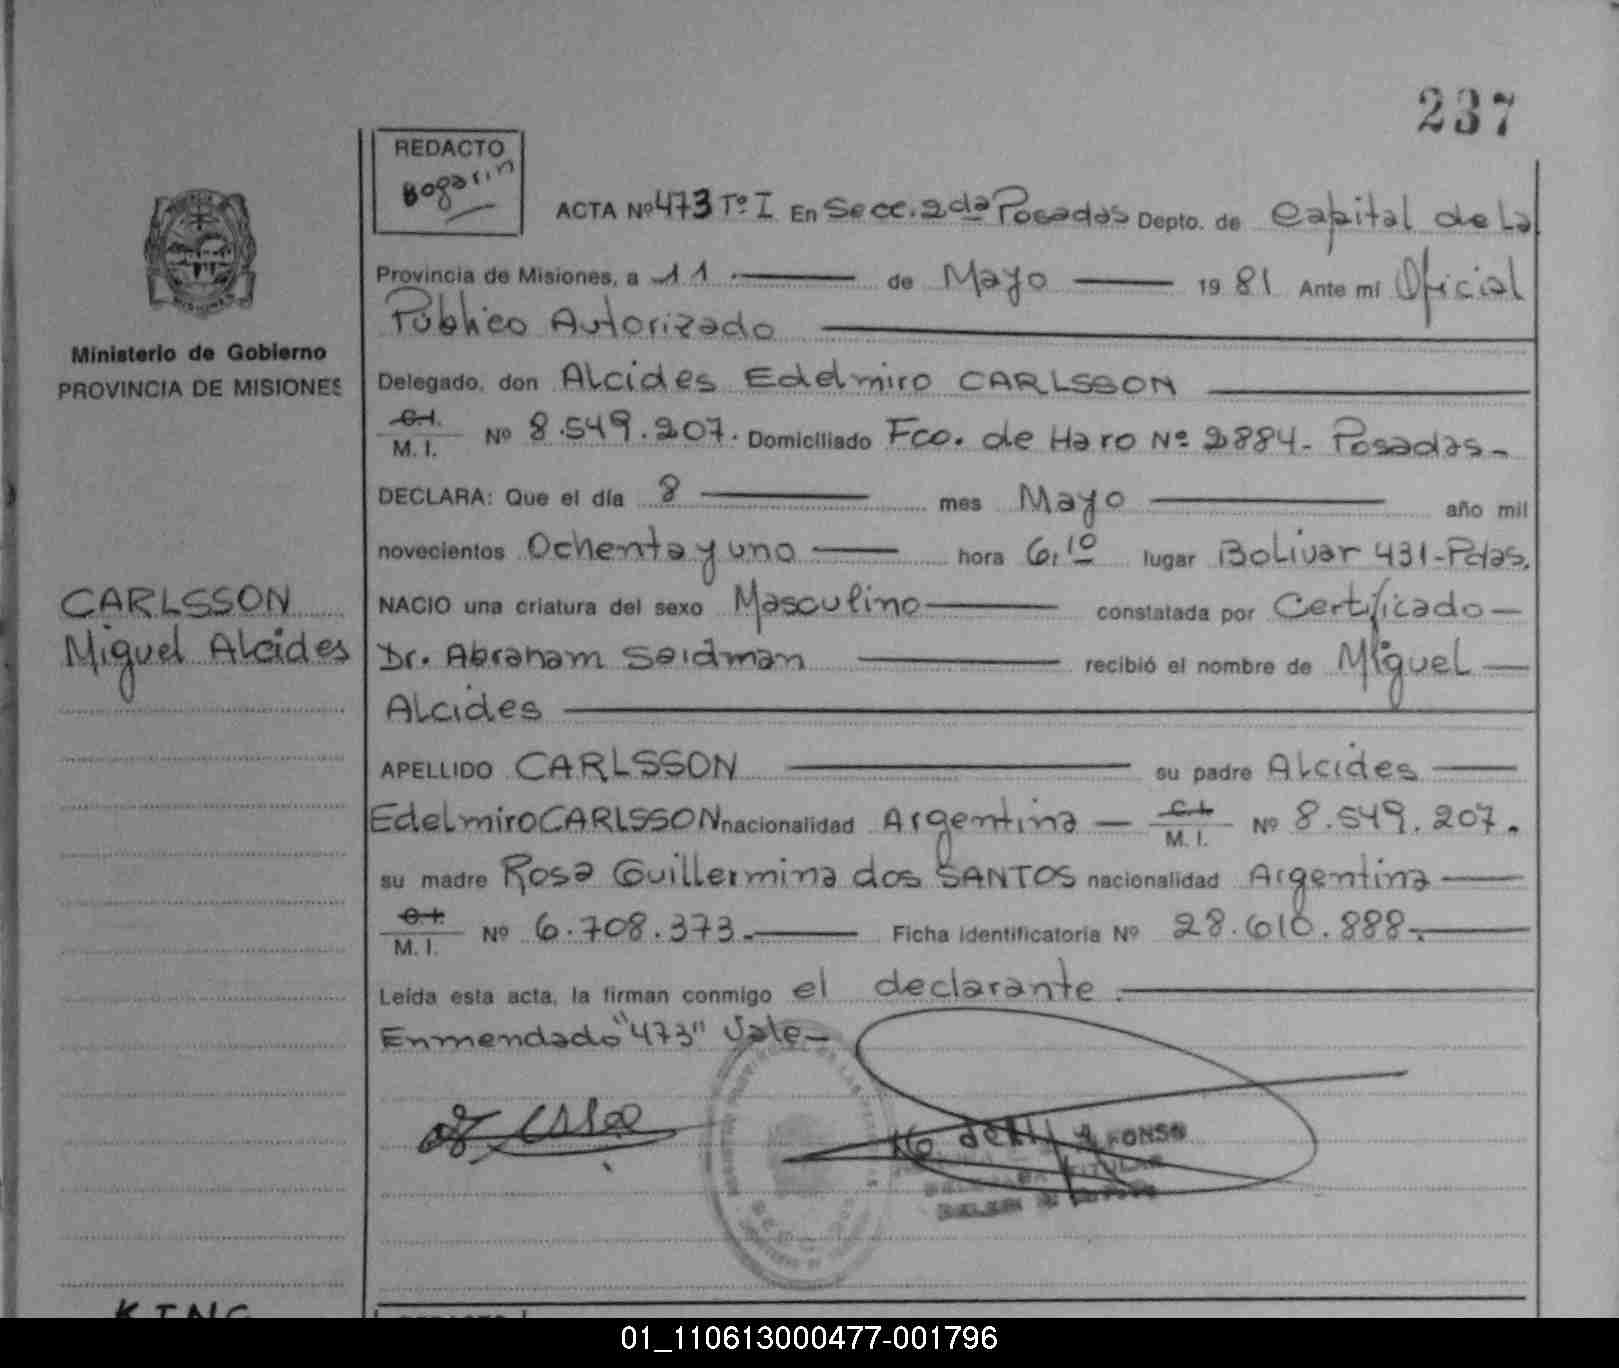 237
REDACTO
Bogarin
ACTA Nº 473 Tº I En Secc. 2da Posadas Depto. de Capital de La
Provincia de Misiones, a 11 de Mayo 1981 Ante mí Oficial
Público Autorizado
Ministerio de Gobierno
PROVINCIA DE MISIONES
Delegado, don Alcides Edelmiro CARLSSON
C.I.
M. I. Nº 8.549.207. Domiciliado Fco. de Haro Nº 2884.- Posadas-
DECLARA: Que el día 8 mes Mayo año mil
novecientos Ochenta y uno hora 6,10 lugar Bolivar 431-Pdas.
CARLSSON
Miguel Alcides
NACIO una criatura del sexo Masculino constatada por Certificado
Dr. Abraham Seidman recibió el nombre de Miguel
Alcides
APELLIDO CARLSSON su padre Alcides
Edelmiro CARLSSON nacionalidad Argentina C.I.
M. I. Nº 8.549.207.
su madre Rosa Guillermina dos SANTOS nacionalidad Argentina
C.I.
M. I. Nº 6.708.373.- Ficha identificatoria Nº 28.610.888.-
Leída esta acta, la firman conmigo el declarante.
Enmendado "473" Vale-
FONSO
TITULAR
KING
01_110613000477-001796